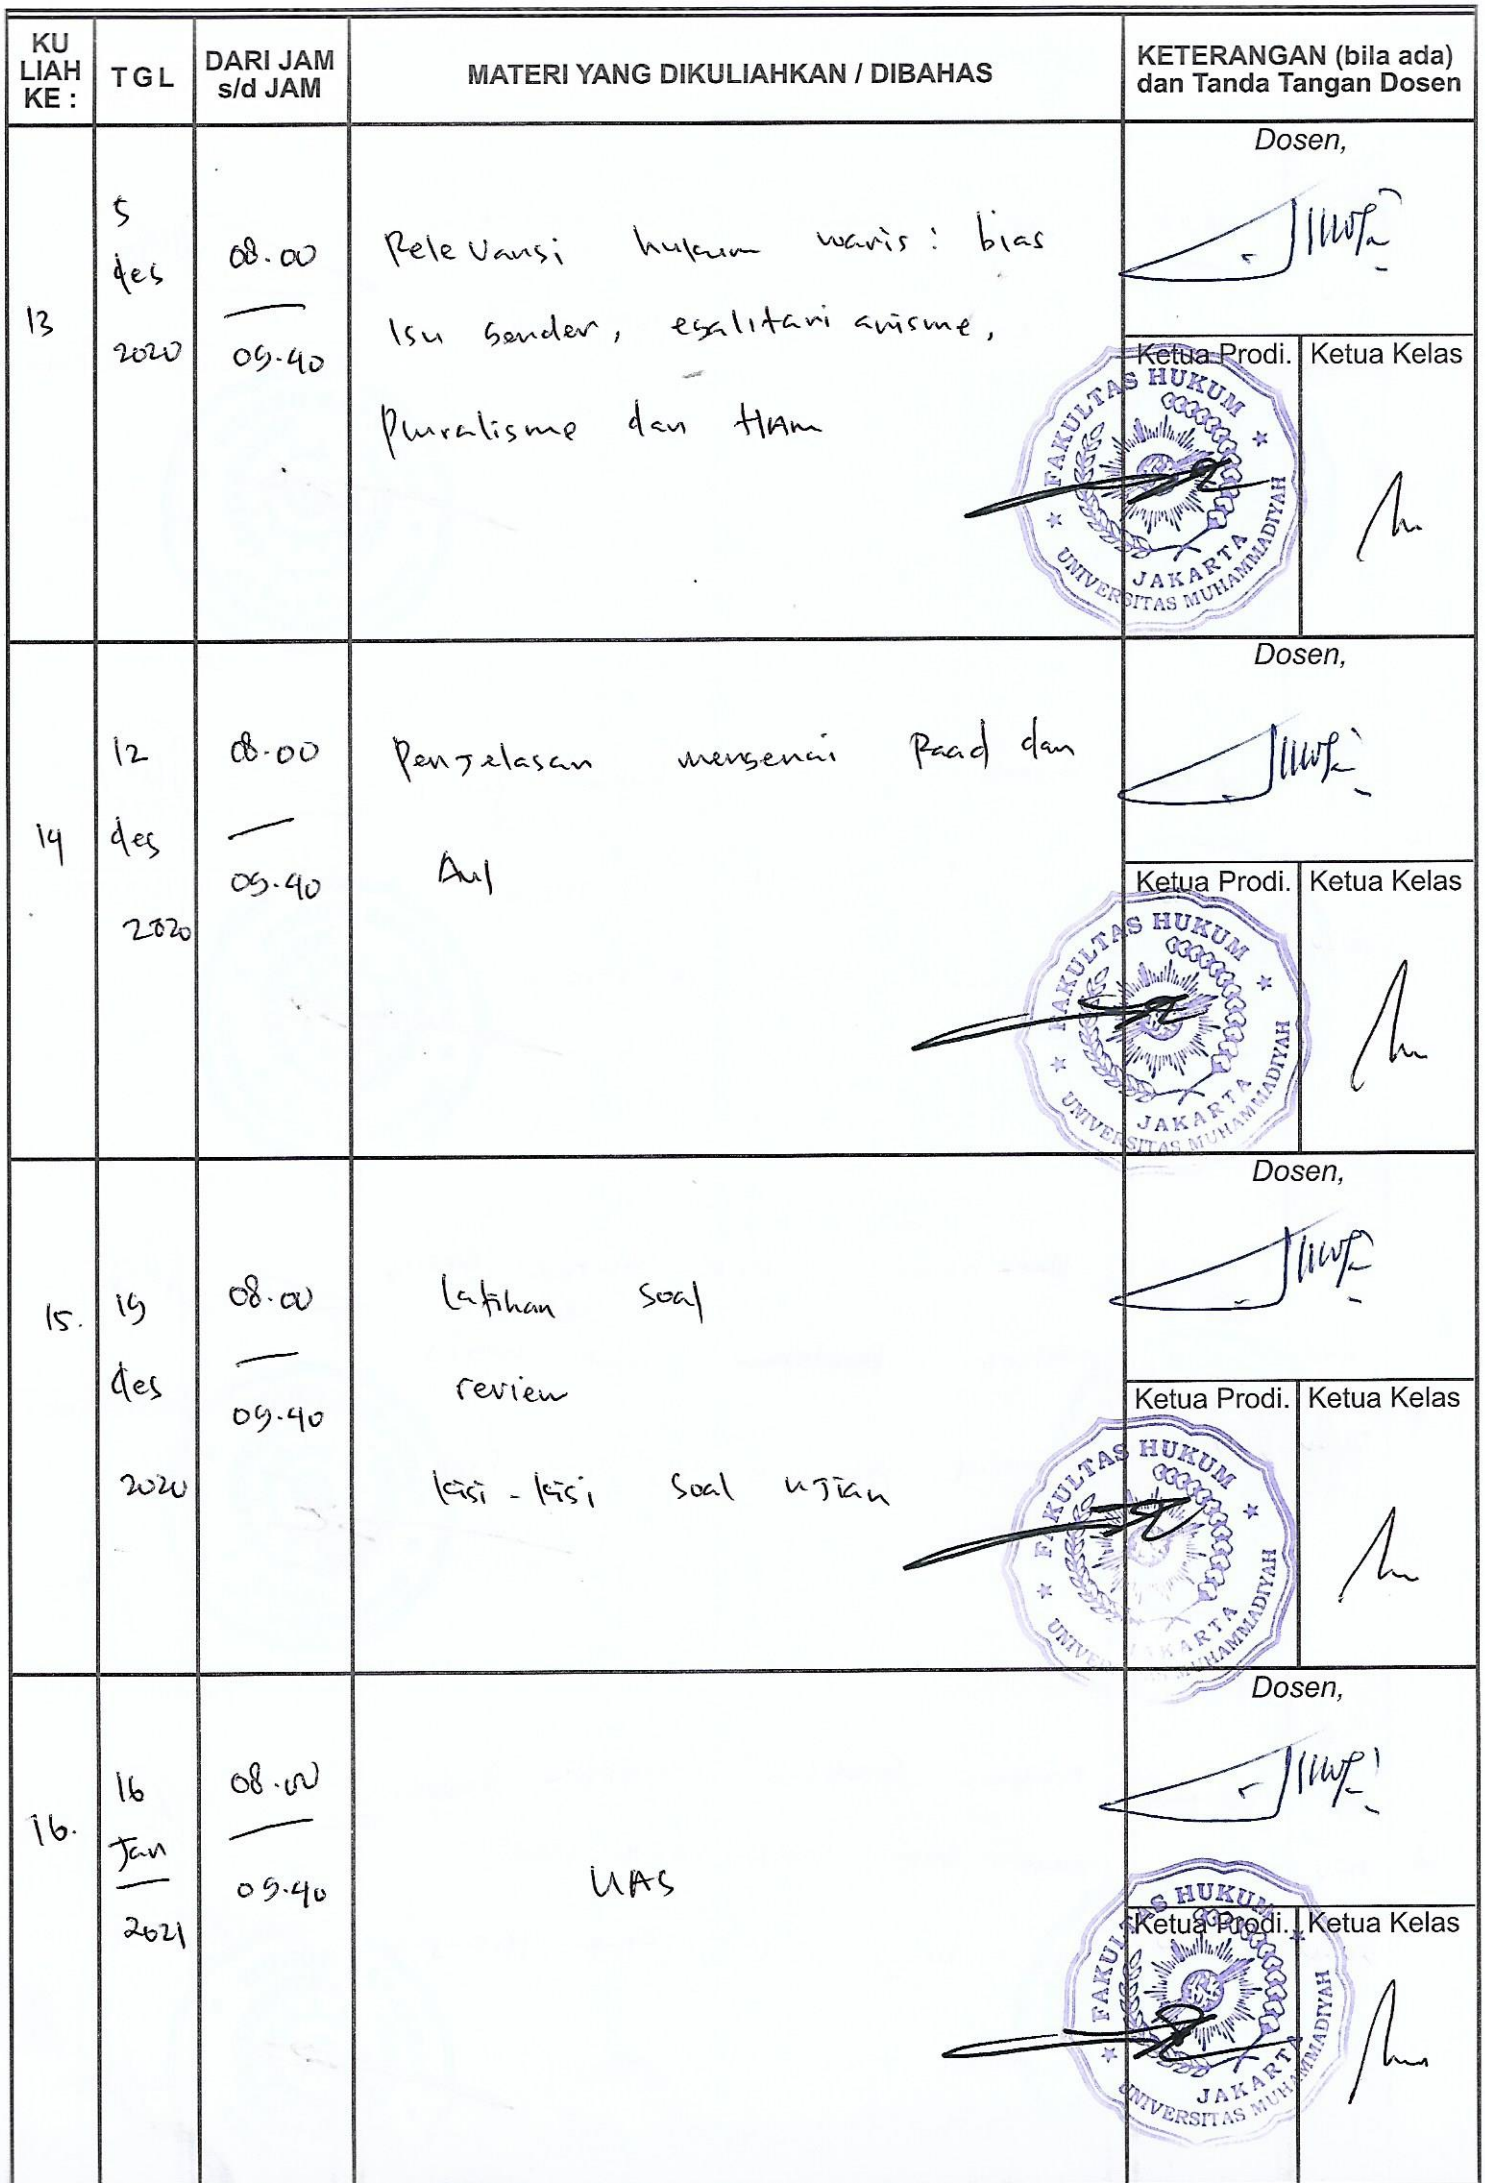 KU
LIAH
KE :
TGL
DARI JAM
s/d JAM
MATERI YANG DIKULIAHKAN / DIBAHAS
KETERANGAN (bila ada)
dan Tanda Tangan Dosen
13
5
des
2020
08.00
09.40
Relevansi hukum waris : bias
Isu Gender, egalitari arisme,
Pluralisme dan HAM
Dosen,
Ketua Prodi.
Ketua Kelas
FAKULTAS HUKUM
UNIVERSITAS MUHAMMADIYAH
JAKARTA
14
12
des
2020
08.00
09.40
Penjelasan mengenai Raad dan
Aul
Dosen,
Ketua Prodi.
Ketua Kelas
FAKULTAS HUKUM
UNIVERSITAS MUHAMMADIYAH
JAKARTA
15.
19
des
2020
08.00
09.40
Latihan Soal
review
kisi - kisi Soal Ujian
Dosen,
Ketua Prodi.
Ketua Kelas
FAKULTAS HUKUM
MUHAMMADIYAH
JAKARTA
16.
16
Jan
2021
08.00
09.40
UAS
Dosen,
Ketua Prodi.
Ketua Kelas
FAKULTAS HUKUM
UNIVERSITAS MUHAMMADIYAH
JAKARTA